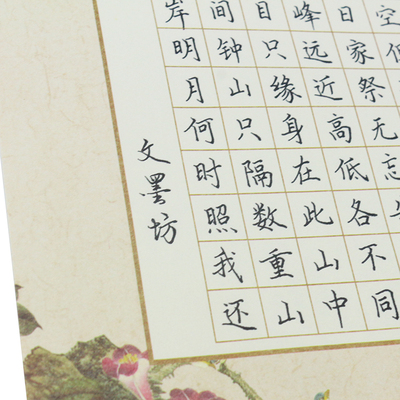 空
日家祭无忘
峰远近高低各不同
目只缘身在此山中
间钟山只隔数重山
岸明月何时照我还
文墨坊